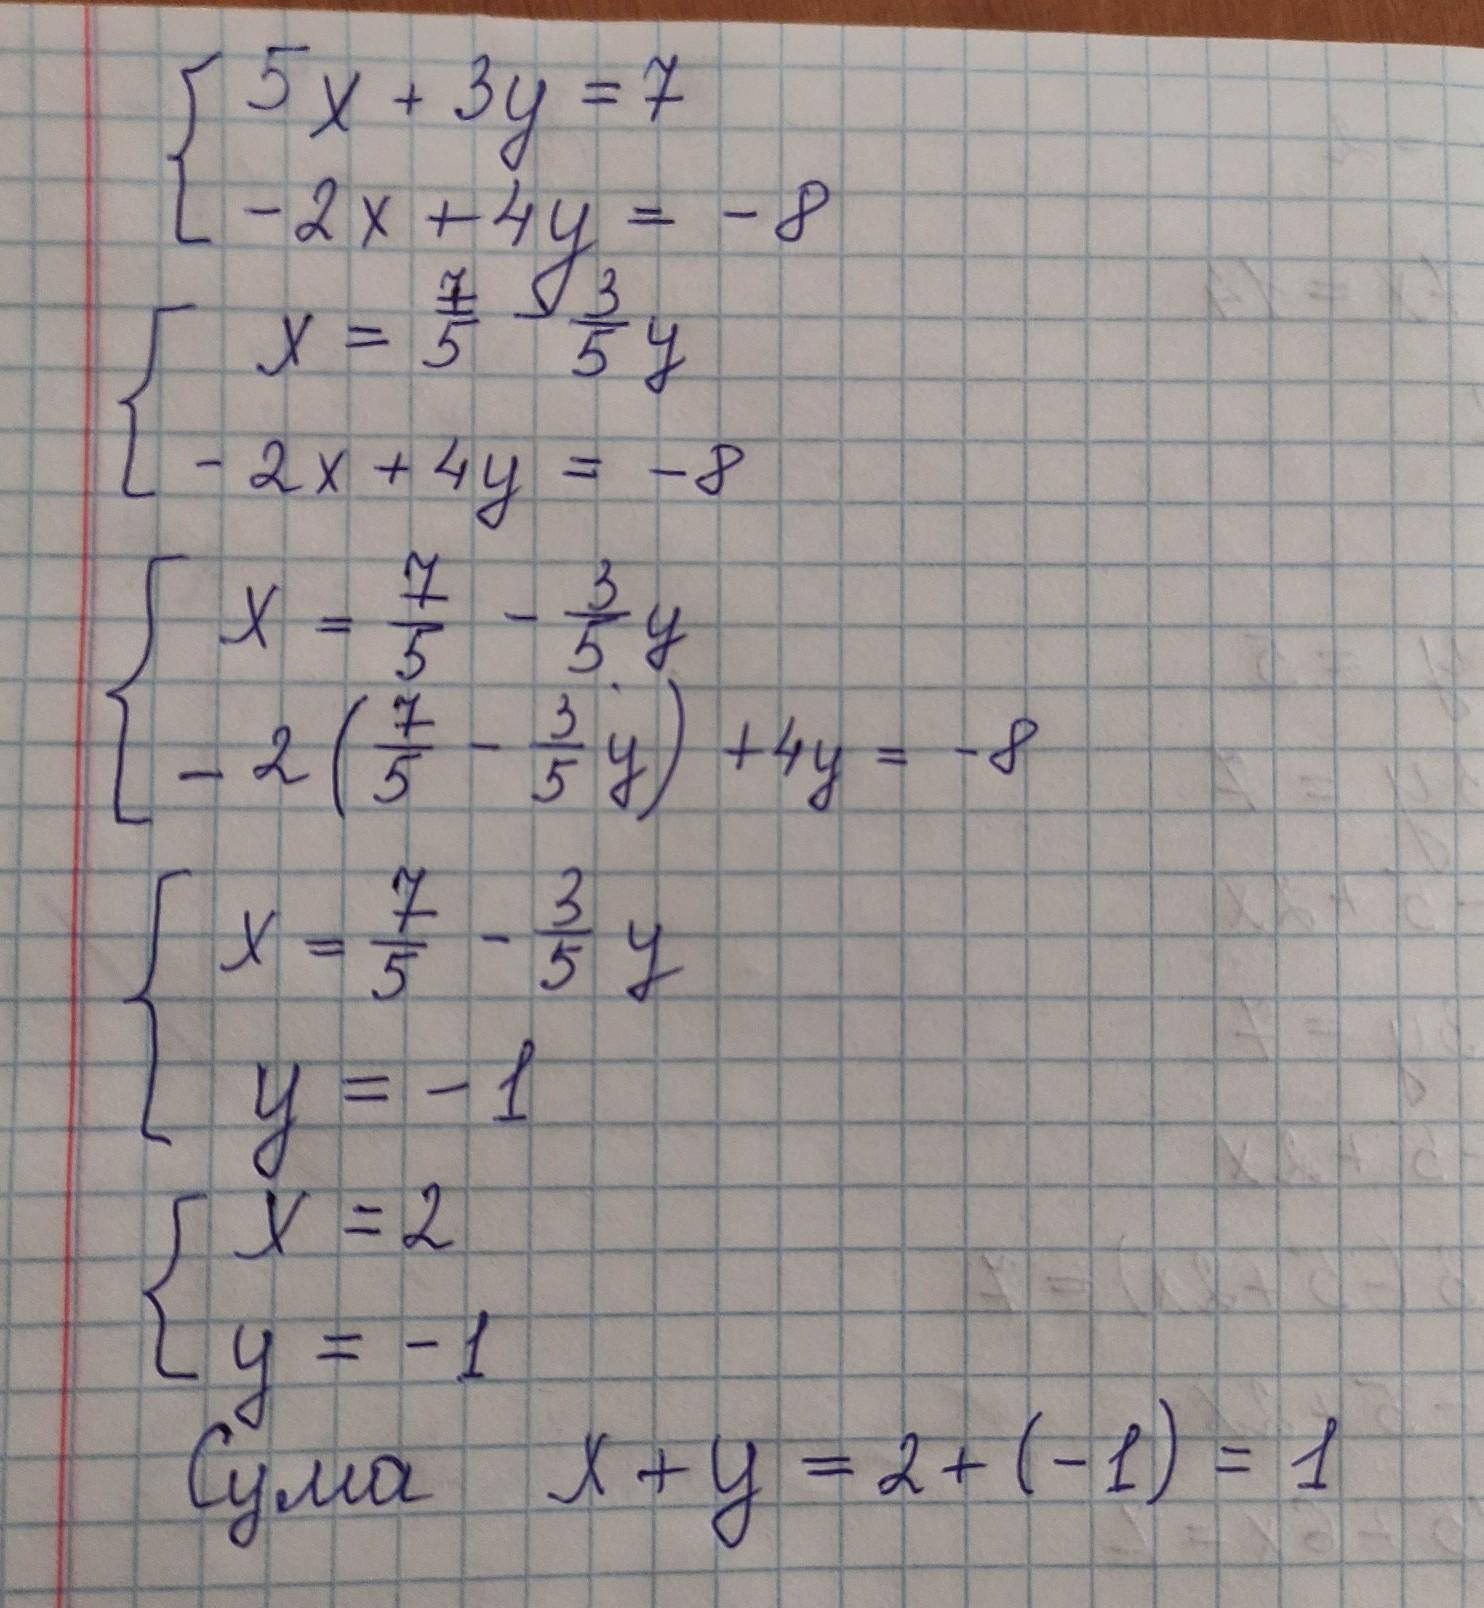 5x + 3y = 7
-2x + 4y = -8
x = 7/5 - 3/5 y
-2x + 4y = -8
x = 7/5 - 3/5 y
-2(7/5 - 3/5 y) + 4y = -8
x = 7/5 - 3/5 y
y = -1
x = 2
y = -1
Сума x + y = 2 + (-1) = 1